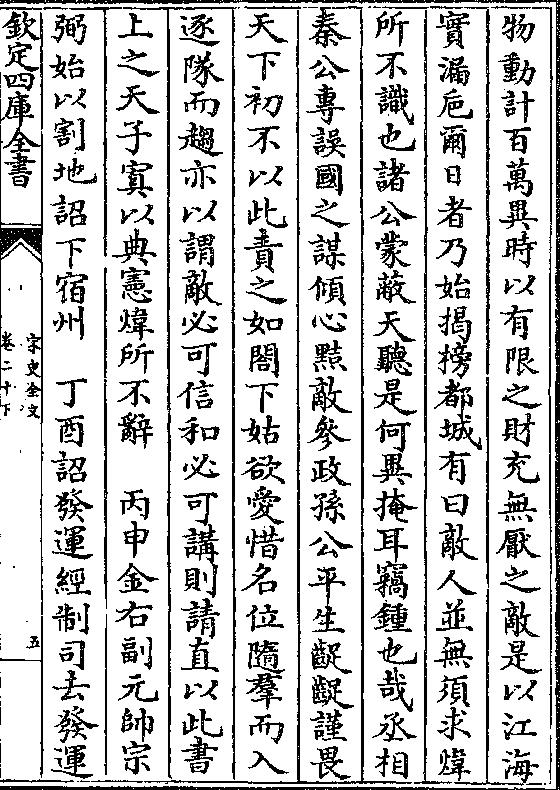 物動計百萬異時以有限之財充無厭之敵是以江海
實漏巵爾日者乃始揭榜都城有曰敵人並無須求煒
所不識也諸公蒙蔽天聽是何異掩耳竊鍾也哉丞相
秦公專誤國之謀傾心黠敵參政孫公平生齪齪謹畏
天下初不以此責之如閤下姑欲愛惜名位隨羣而入
逐隊而趨亦以謂敵必可信和必可講則請直以此書
上之天子寘以典憲煒所不辭　丙申金右副元帥宗
弼始以割地詔下宿州　丁酉詔發運經制司去發運
欽定四庫全書
宋史全文
卷二十下
五